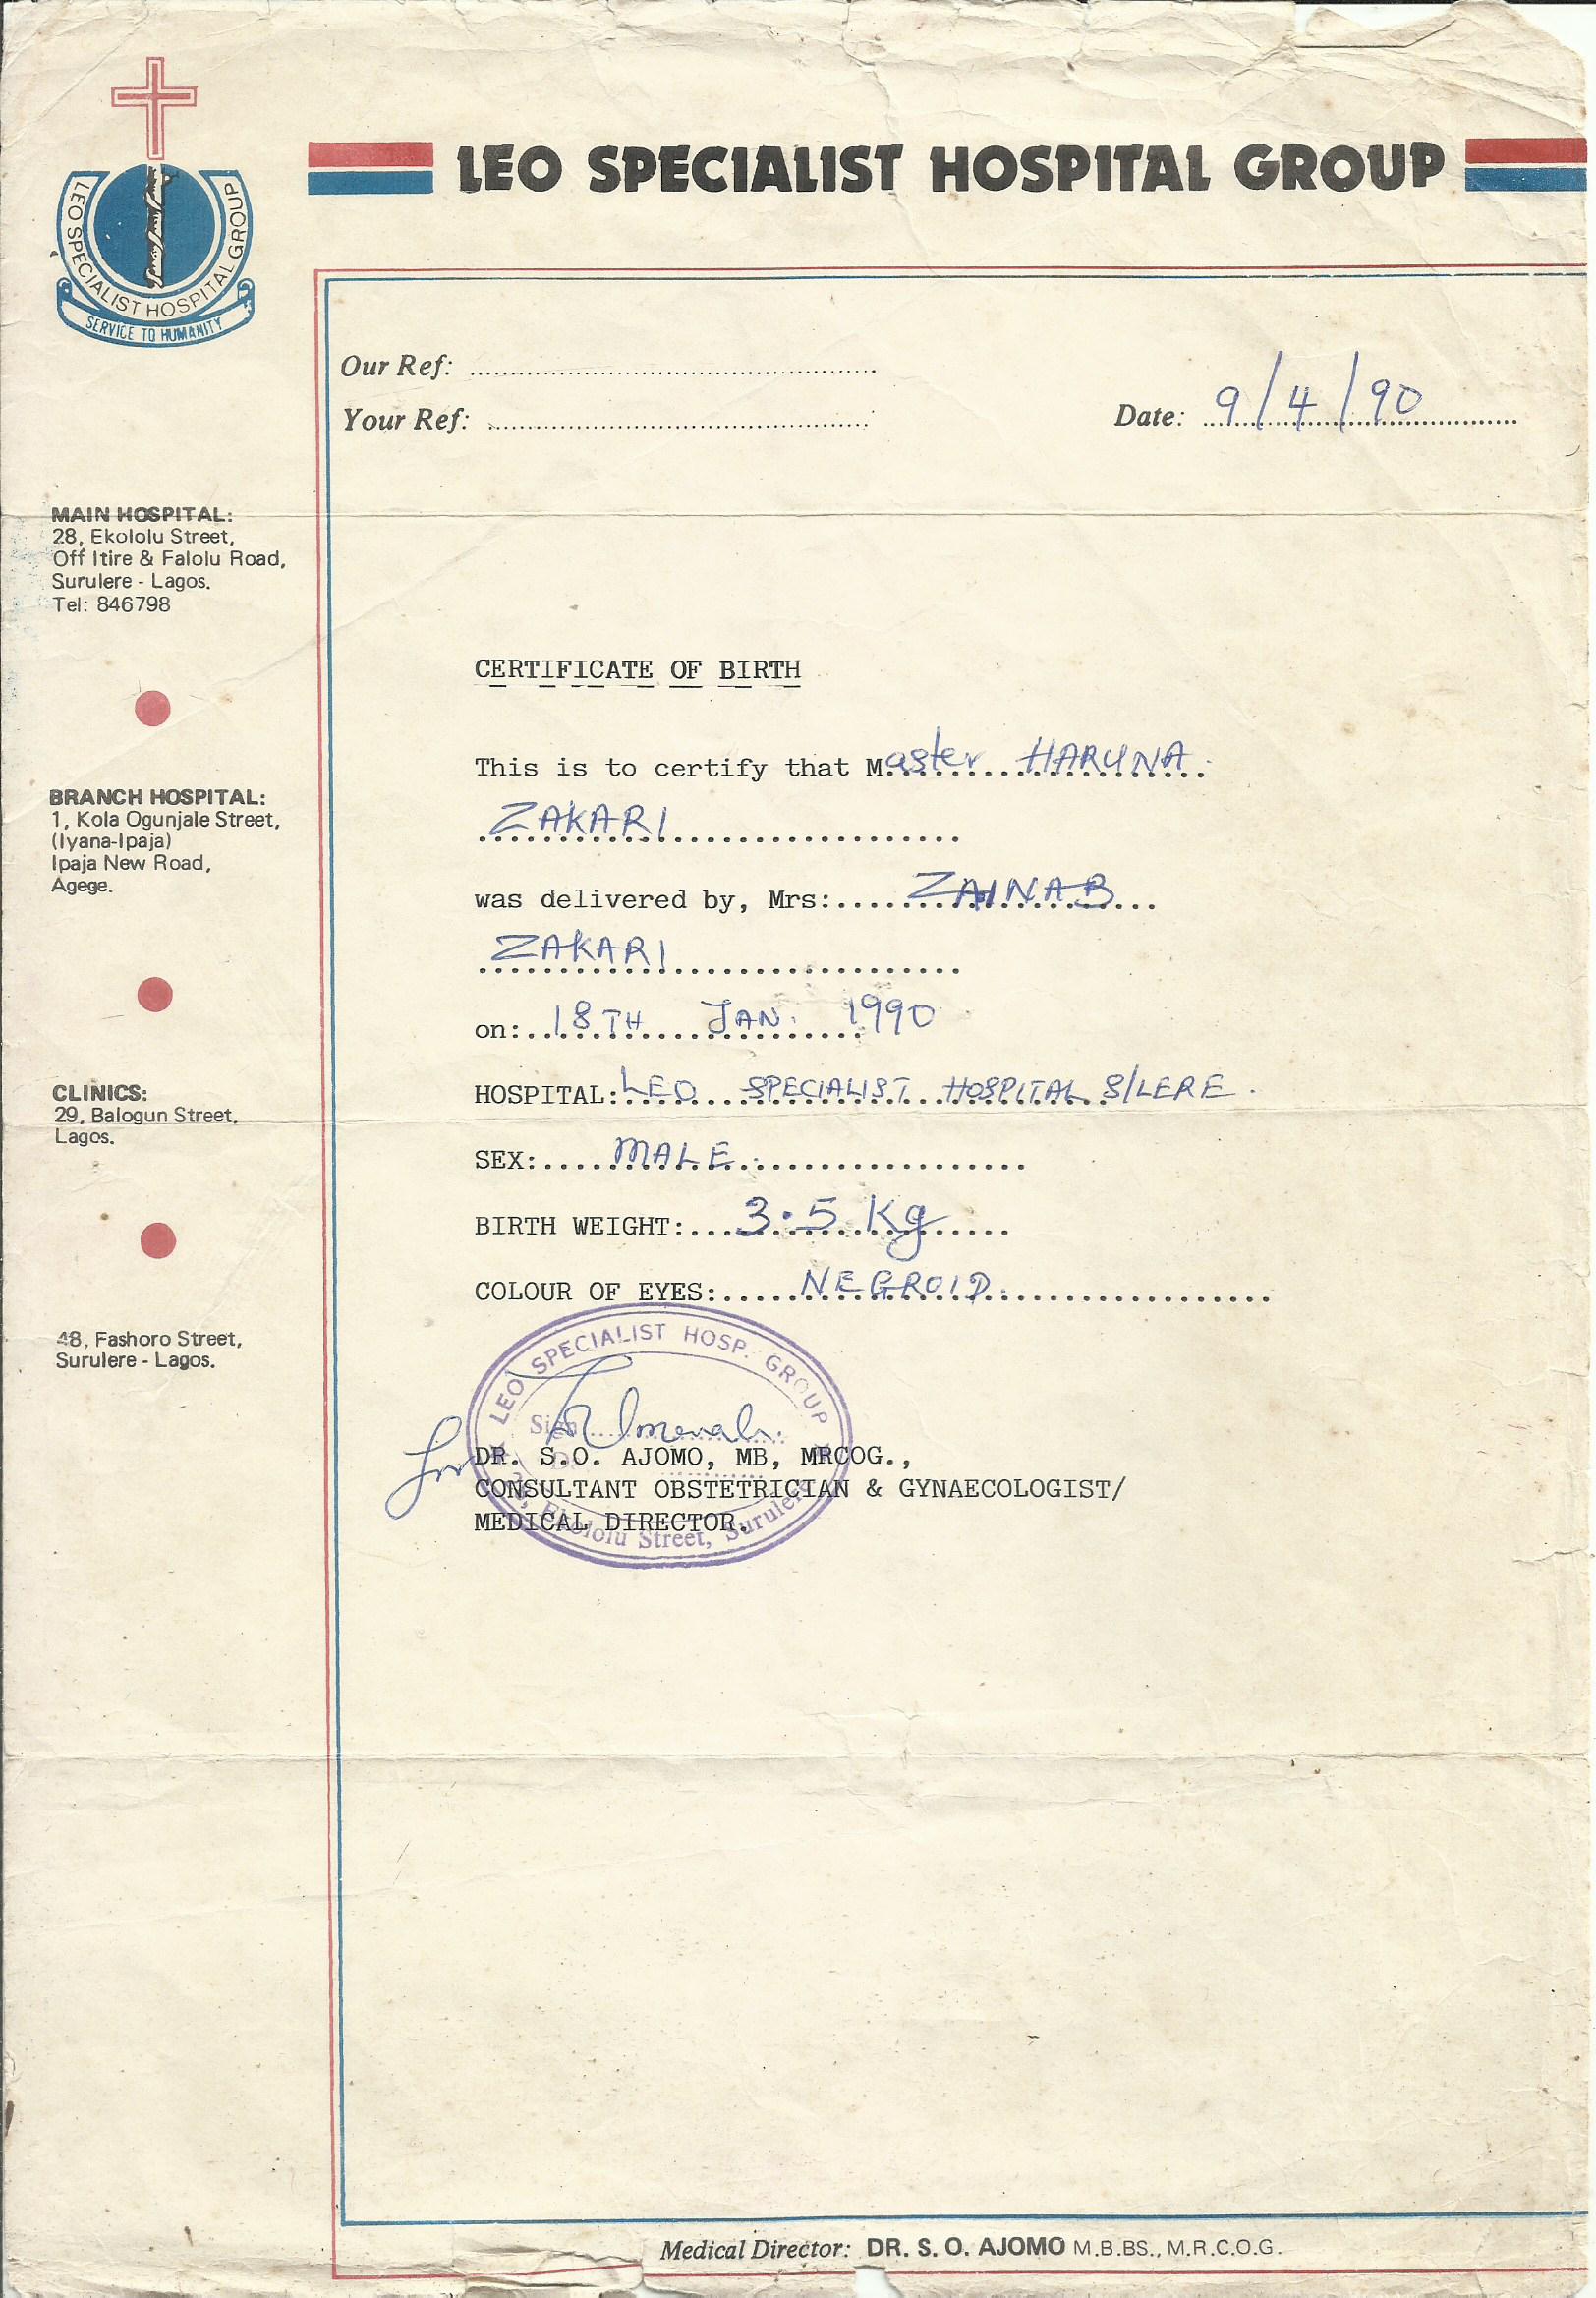 LEO SPECIALIST HOSPITAL GROUP
LEO SPECIALIST HOSPITAL GROUP
SERVICE TO HUMANITY
Our Ref: ..........
Your Ref: ..........
Date: 9/4/90
MAIN HOSPITAL:
28, Ekololu Street,
Off Itire & Falolu Road,
Surulere - Lagos.
Tel: 846798
BRANCH HOSPITAL:
1, Kola Ogunjale Street,
(Iyana-Ipaja)
Ipaja New Road,
Agege.
CLINICS:
29, Balogun Street,
Lagos.
48, Fashoro Street,
Surulere - Lagos.
CERTIFICATE OF BIRTH
This is to certify that Master HARUNA
ZAKARI
was delivered by, Mrs: ZAINAB
ZAKARI
on: 18TH JAN. 1990
HOSPITAL: LEO SPECIALIST HOSPITAL S/LERE.
SEX: MALE
BIRTH WEIGHT: 3.5 Kg
COLOUR OF EYES: NEGROID
LEO SPECIALIST HOSP. GROUP
Sign
for DR. S.O. AJOMO, MB, MRCOG.,
CONSULTANT OBSTETRICIAN & GYNAECOLOGIST/
MEDICAL DIRECTOR.
28, Ekololu Street, Surulere
Medical Director: DR. S. O. AJOMO M.B.BS., M.R.C.O.G.